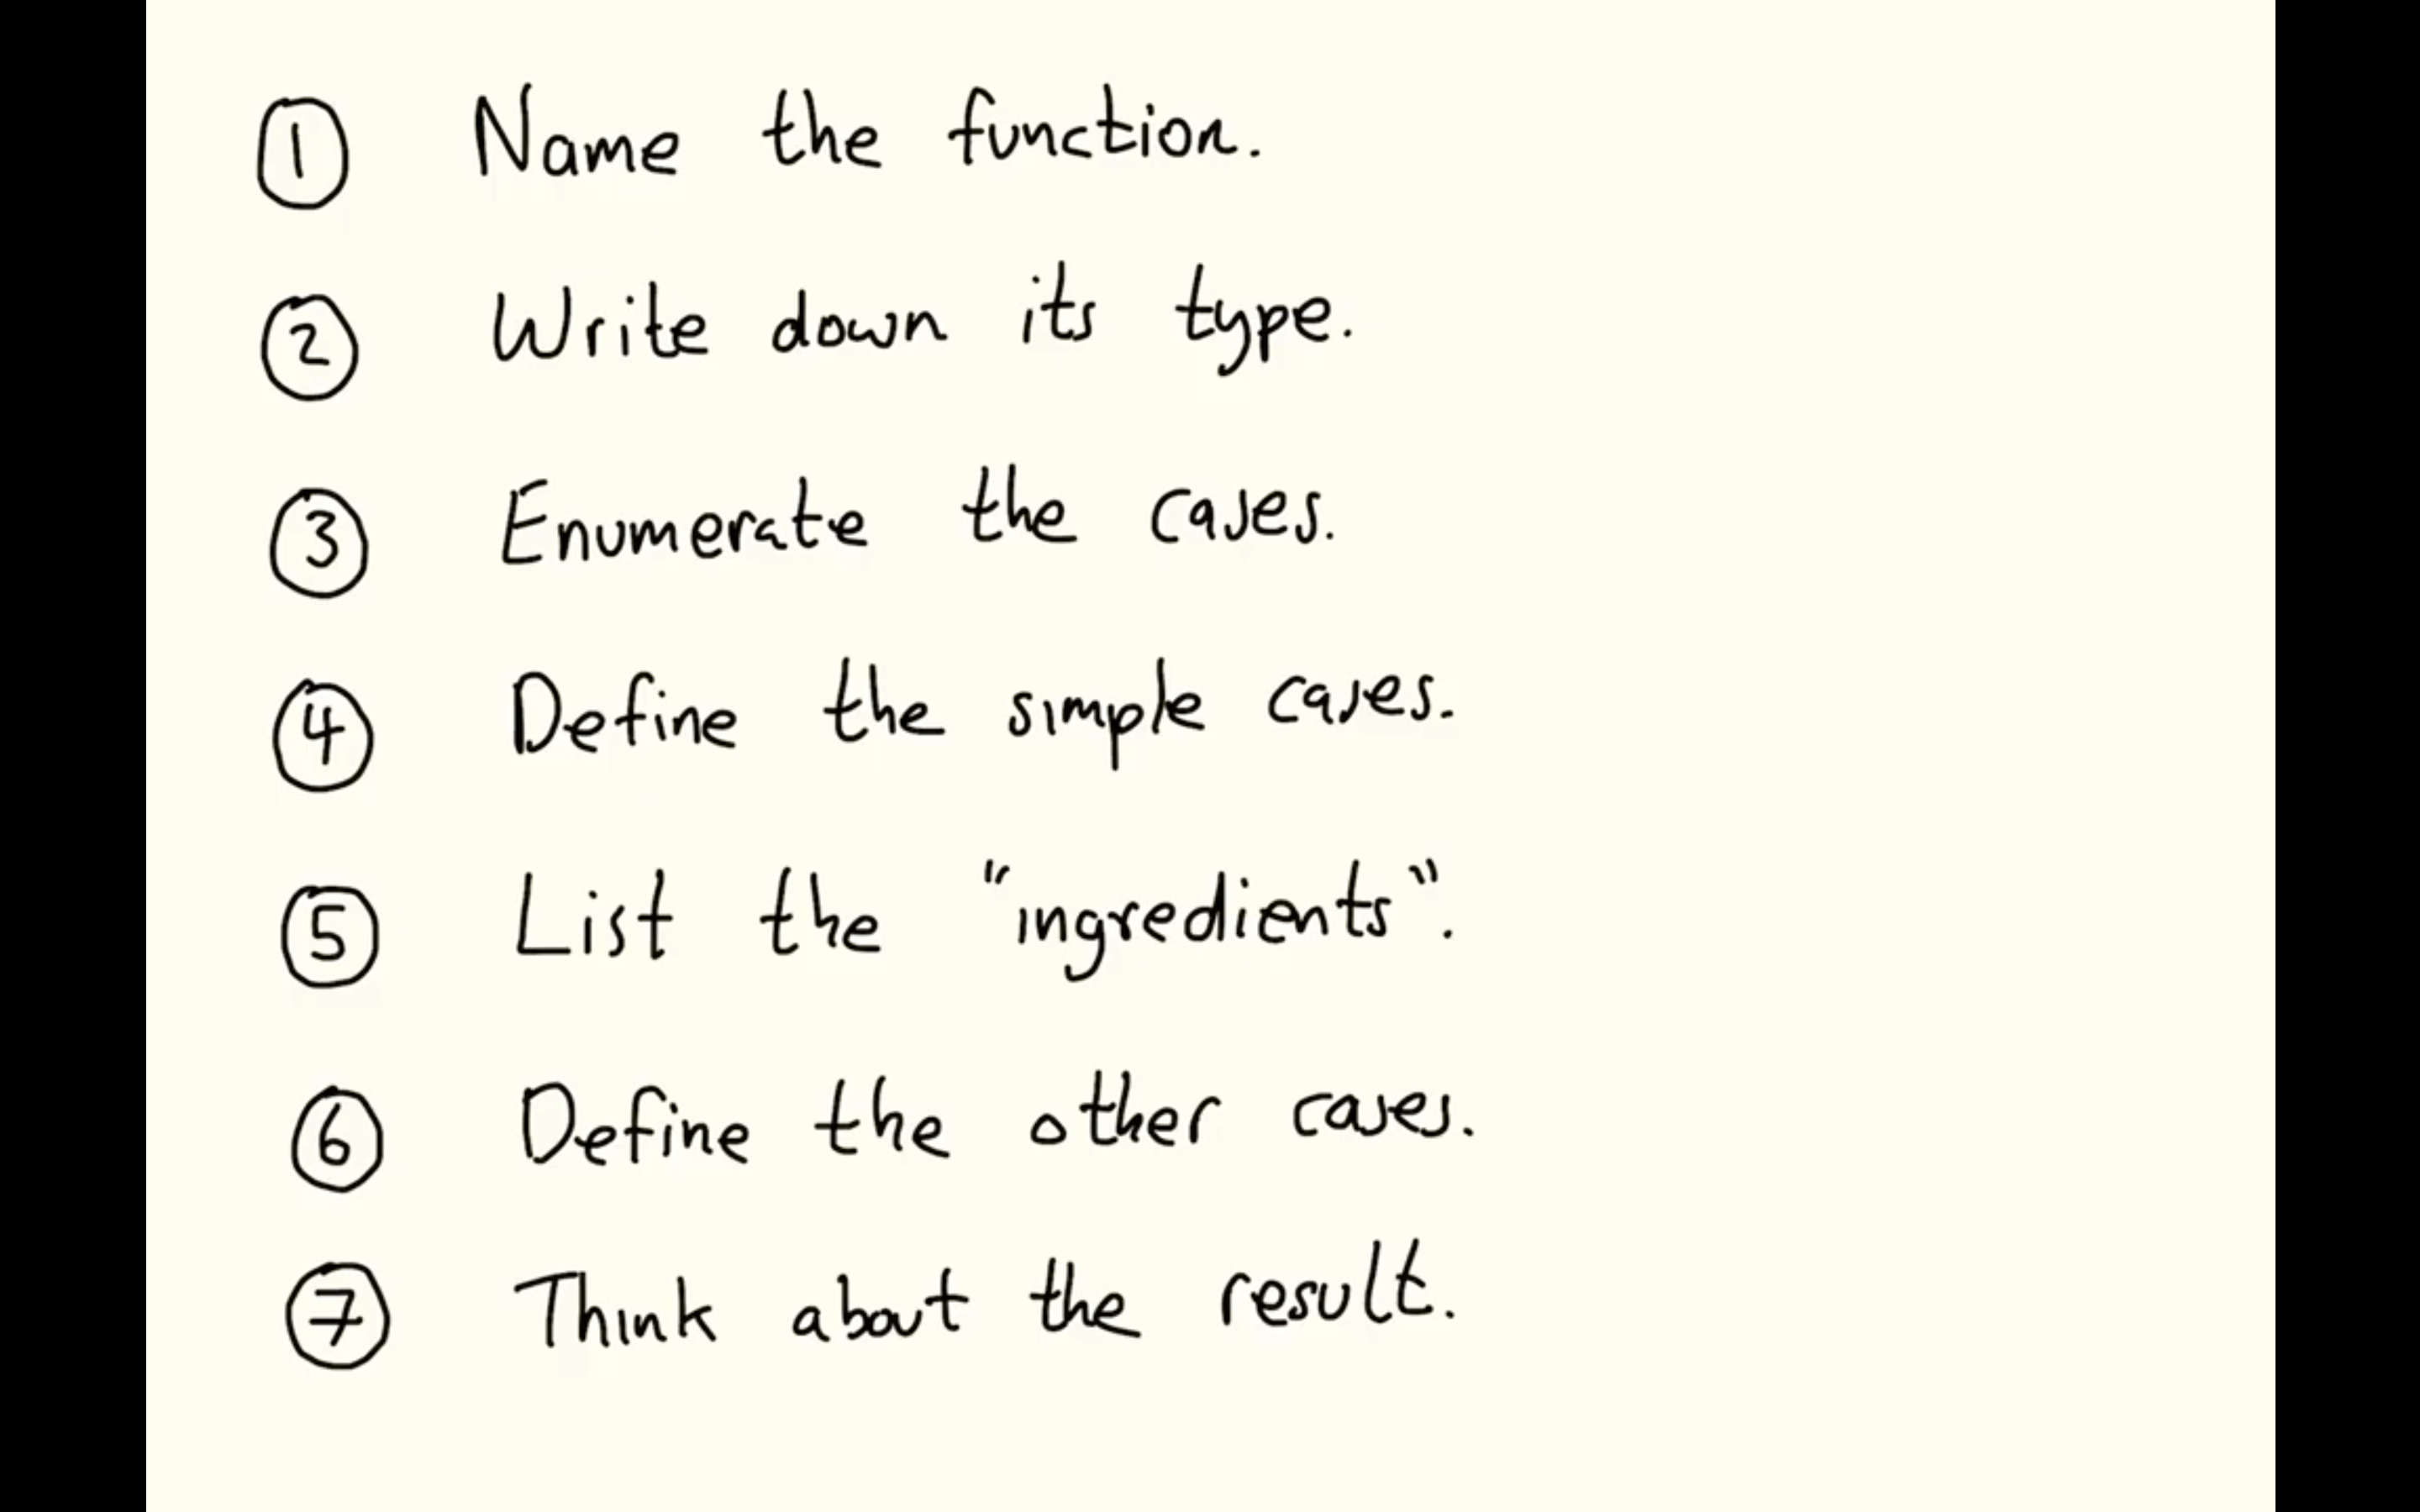 ① Name the function.
② Write down its type.
③ Enumerate the cases.
④ Define the simple cases.
⑤ List the "ingredients".
⑥ Define the other cases.
⑦ Think about the result.